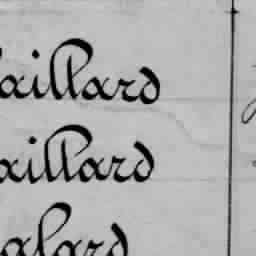 aillard
aillard
alard